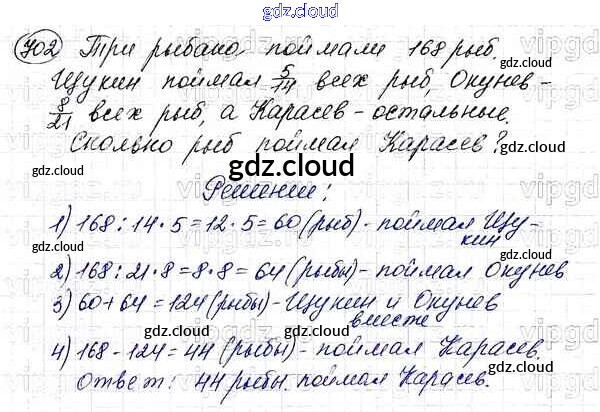 gdz.cloud
702 Три рыбака поймали 168 рыб
Щукин поймал 5/14 всех рыб, Окунев -
8/21 всех рыб, а Карасев - остальные.
Сколько рыб поймал Карасев?
gdz.cloud
Решение:
1) 168 : 14 · 5 = 12 · 5 = 60 (рыб) - поймал Щу-
кин
2) 168 : 21 · 8 = 8 · 8 = 64 (рыбы) - поймал Окунев
3) 60 + 64 = 124 (рыбы) - Щукин и Окунев
вместе
4) 168 - 124 = 44 (рыбы) - поймал Карасев.
Ответ: 44 рыбы поймал Карасев.
gdz.cloud